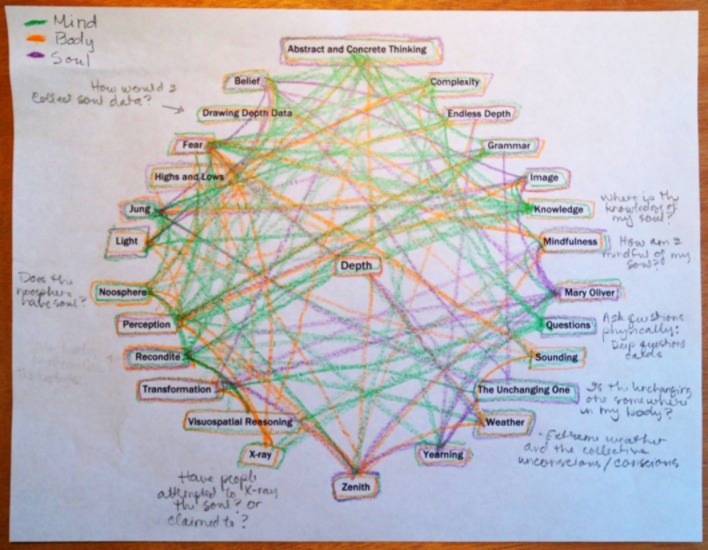 Mind
Body
Soul
Abstract and Concrete Thinking
Belief
Complexity
How would I
collect soul data?
Drawing Depth Data
Endless Depth
Fear
Grammar
Highs and Lows
Image
Jung
Knowledge
Where is the
knowledge of
my soul?
Light
Mindfulness
How am I
mindful of my
soul?
Depth
Does the
noosphere
have soul?
Noosphere
Mary Oliver
Perception
Questions
Ask questions
physically:
Deep questions
cards
Recondite
Sounding
Transformation
The Unchanging One
Is the unchanging
one somewhere
in my body?
Visuospatial Reasoning
Weather
- Extreme weather
and the collective
unconscious/conscious
X-ray
Yearning
Have people
attempted to X-ray
the soul? or
claimed to?
Zenith